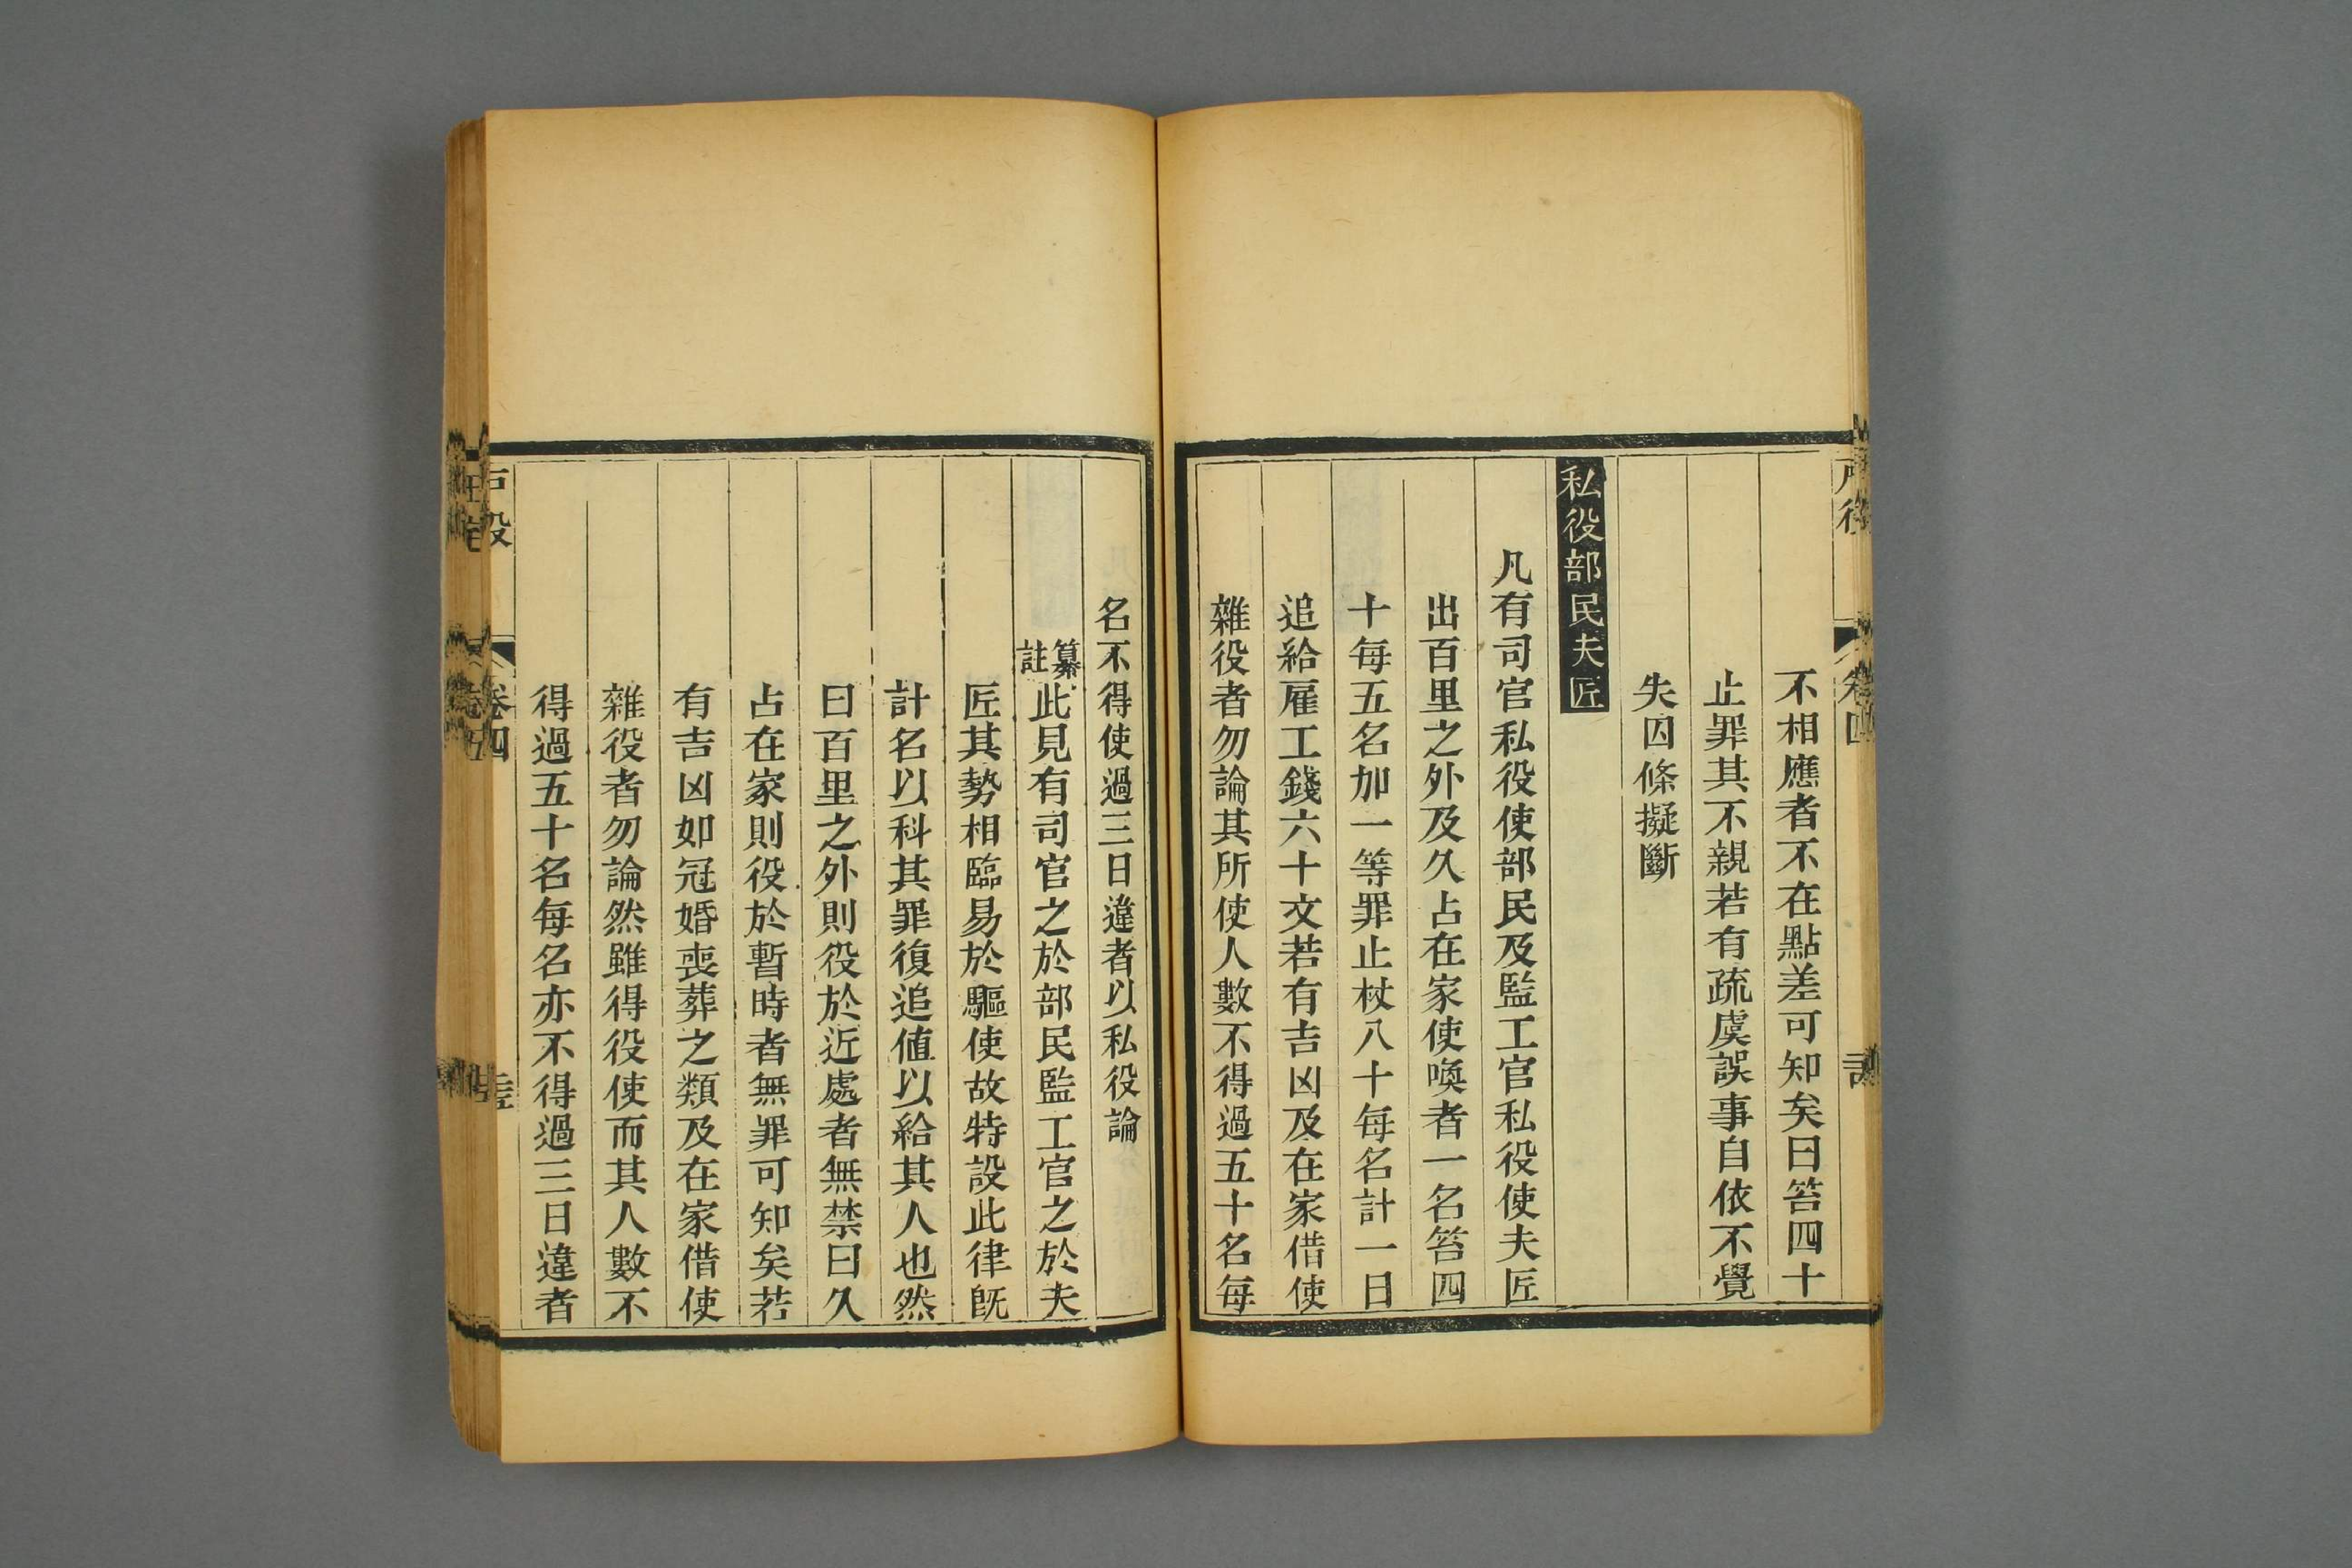 不相應者不在點差可知矣曰笞四十
止罪其不親若有疏虞誤事自依不覺
失囚條擬斷
私役部民夫匠
凡有司官私役使部民及監工官私役使夫匠
出百里之外及久占在家使喚者一名笞四
十每五名加一等罪止杖八十每名計一日
追給雇工錢六十文若有吉凶及在家借使
雜役者勿論其所使人數不得過五十名每
名不得使過三日違者以私役論
纂註此見有司官之於部民監工官之於夫
匠其勢相臨易於驅使故特設此律旣
計名以科其罪復追值以給其人也然
曰百里之外則役於近處者無禁曰久
占在家則役於暫時者無罪可知矣若
有吉凶如冠婚喪葬之類及在家借使
雜役者勿論然雖得役使而其人數不
得過五十名每名亦不得過三日違者
卷四